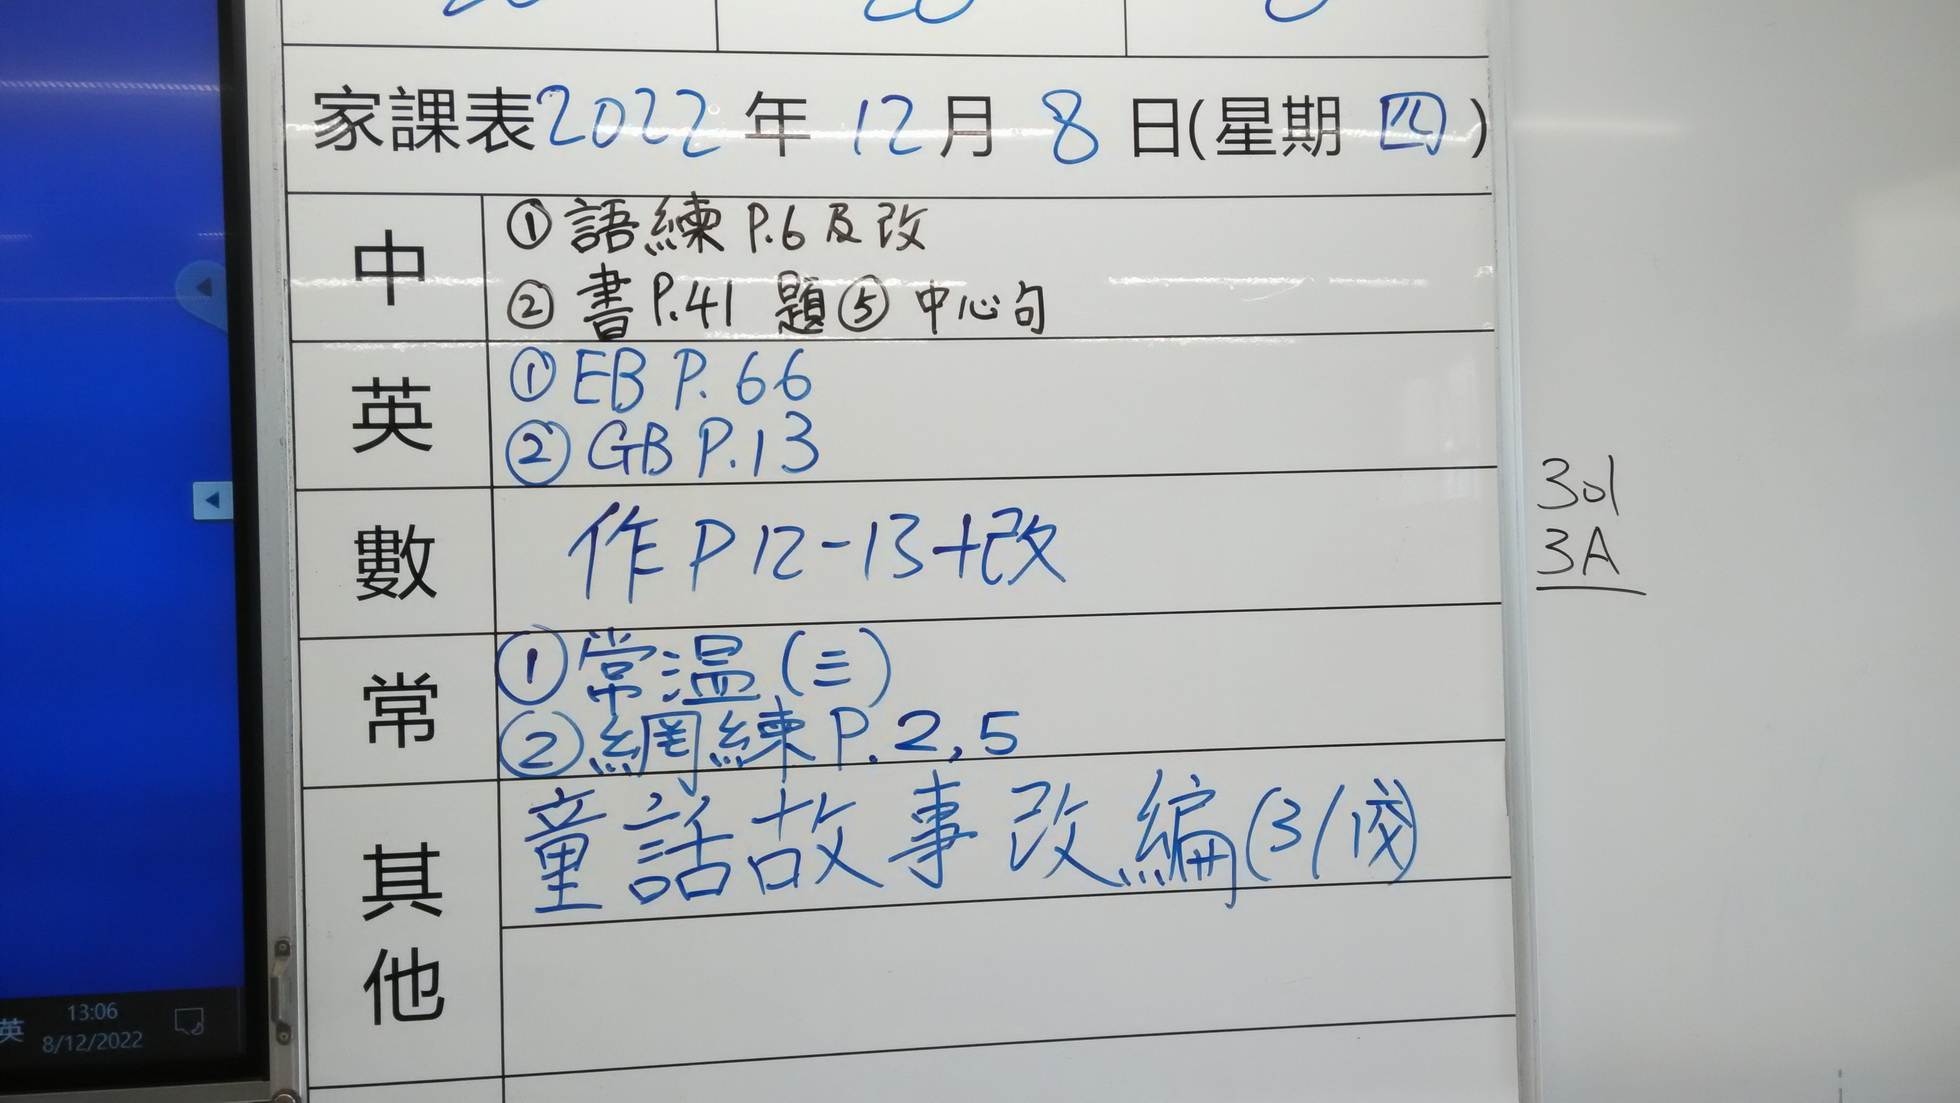 家課表2022年12月8日(星期四)
中
① 語練 P.6 及改
② 書 P.41 題⑤ 中心句
英
① EB P. 66
② GB P.13
數
作 P 12-13+改
常
① 常溫 (三)
② 網練 P. 2, 5
其他
童話故事改編(3/1交)
3d
3A
英
13:06
8/12/2022